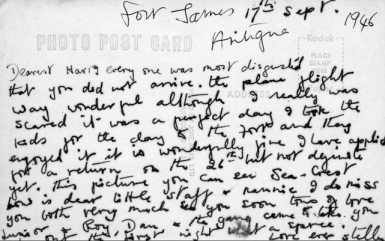 Fort James 17th Sept. 1946
Antigua
PHOTO POST CARD
Kodak
PLACE
STAMP
Dearest Harry every one was most disgusted
that you did not arrive. the plane flight
was wonderful although I really was
scared it was a perfect day I took the
kids for the day to the Fort and they
enjoyed it it is wonderfully fine I have applied
for a return on the 26th but not definite
yet. this picture you can see Sea-Crest
how is dear little staff & nannie I do miss
you both very much see you soon tons of love
Junior & Roy, Dan & the gang came to see you
on the first night what a spree.
Love ever Stella